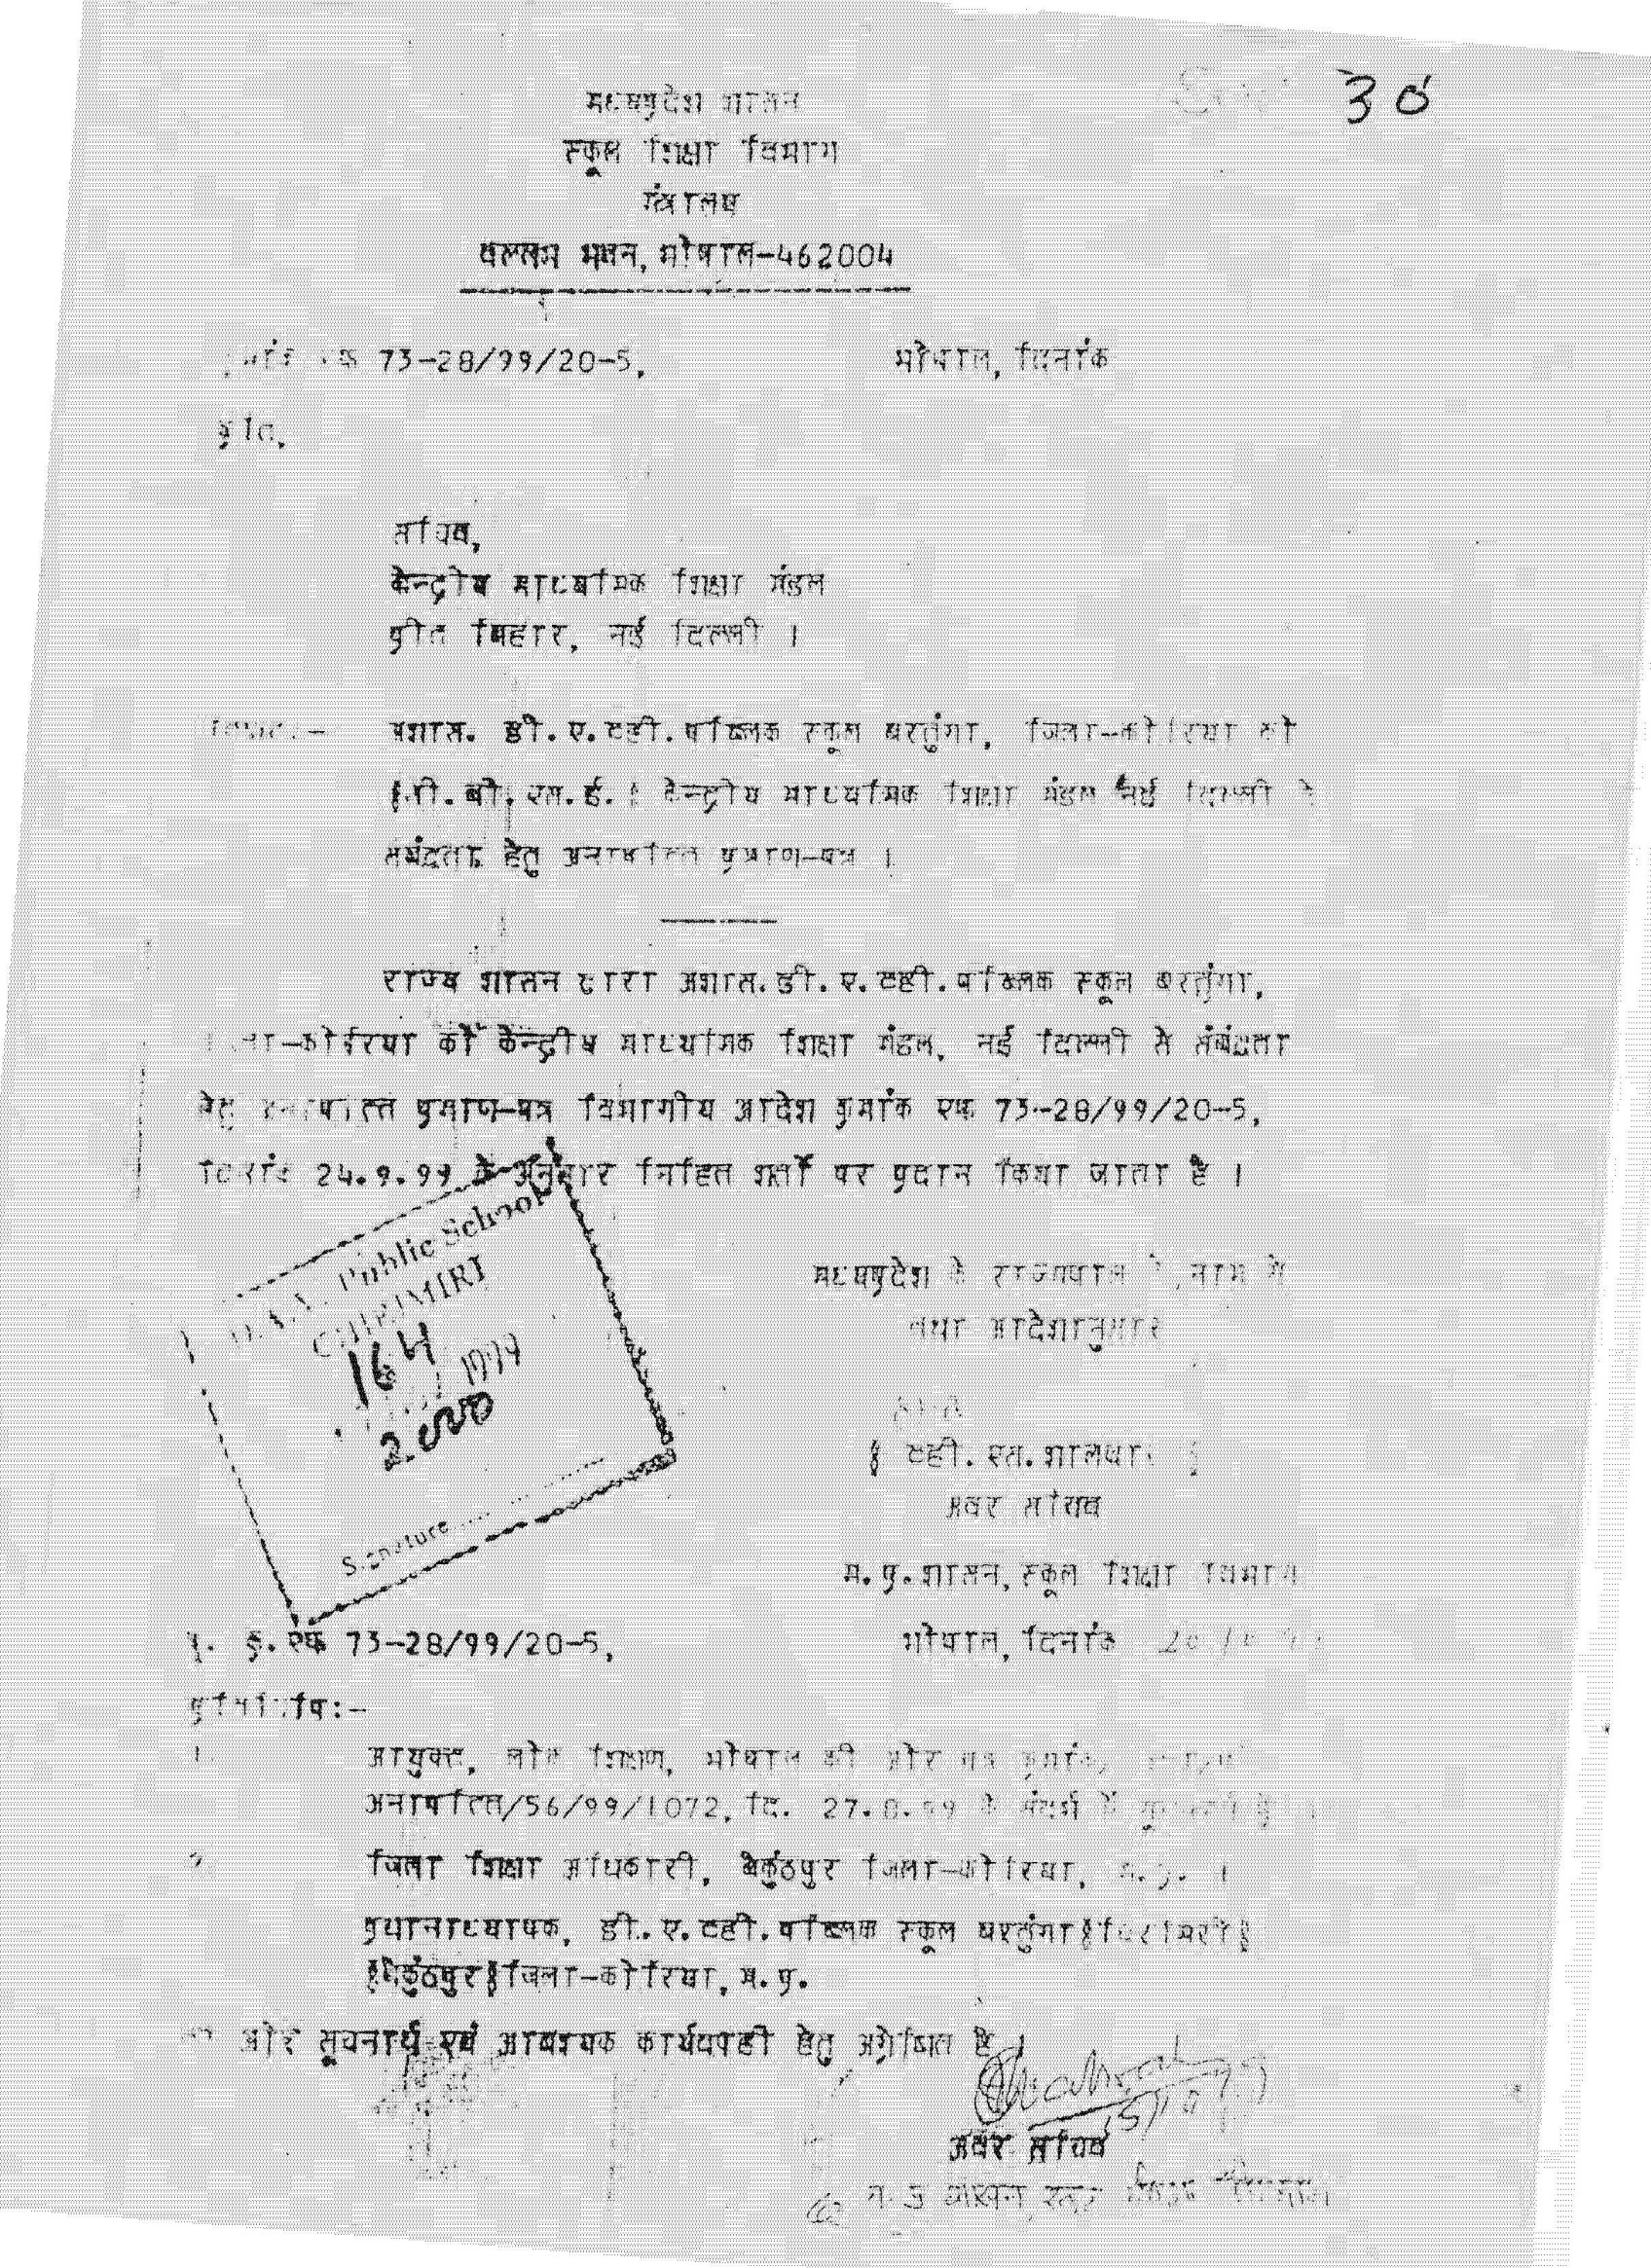 30
मध्यप्रदेश शासन
स्कूल शिक्षा विभाग
मंत्रालय
वल्लभ भवन, भोपाल-462004
एफ 73-28/99/20-5, भोपाल, दिनांक
प्रति,
सचिव,
केन्द्रीय माध्यमिक शिक्षा मंडल
प्रीत विहार, नई दिल्ली ।
विषय:- अशास. डी.ए.व्ही.पब्लिक स्कूल बरतुंगा, जिला-कोरिया को
सी.बी.एस.ई. केन्द्रीय माध्यमिक शिक्षा मंडल नई दिल्ली से
संबंद्वता हेतु अनापत्ति प्रमाण-पत्र ।
राज्य शासन द्वारा अशास.डी.ए.व्ही.पब्लिक स्कूल बरतुंगा,
जिला-कोरिया को केन्द्रीय माध्यमिक शिक्षा मंडल, नई दिल्ली से संबंद्वता
हेतु अनापत्ति प्रमाण-पत्र विभागीय आदेश क्रमांक एफ 73-28/99/20-5,
दिनांक 24.9.99 के अनुसार निहित शर्तों पर प्रदान किया जाता है ।
D.A.V. Public School
CHIRIMIRI
164
1999
2000
Signature
मध्यप्रदेश के राज्यपाल के नाम से
तथा आदेशानुसार
व्ही.एस.
अवर सचिव
म.प्र.शासन, स्कूल शिक्षा विभाग
पृ. क्र.एफ 73-28/99/20-5, भोपाल, दिनांक
प्रतिलिपि:-
आयुक्त, लोक शिक्षण, भोपाल की ओर पत्र क्रमांक
अनापत्ति/56/99/1072, दि. 27.8.99 के संदर्भ में
जिला शिक्षा अधिकारी, बैकुंठपुर जिला-कोरिया, म.प्र. ।
प्रधानाध्यापक, डी.ए.व्ही.पब्लिक स्कूल बरतुंगा चिरमिरी
बैकुंठपुर जिला-कोरिया, म.प्र.
ओर सूचनार्थ एवं आवश्यक कार्यवाही हेतु अग्रेषित है ।
अवर सचिव